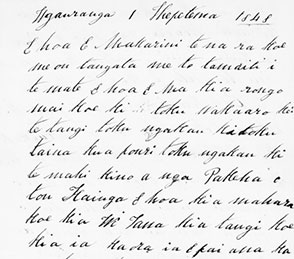 Ngauranga 1 Hepetema 1848
E hoa E Makarini tena ra koe
me ou tangata me to tamaiti i
te mate E hoa E Ma kia rongo
mai koe ki toku wakaaro ki
te tangi toku ngakau ki toku
taina kua pouri toku ngakau ki
te mahi kino a nga Pakeha o
tou Kainga E hoa kia mahara
koe kia Mr Tana kia tangi koe
kia ia ka ora ia E pai ana ka